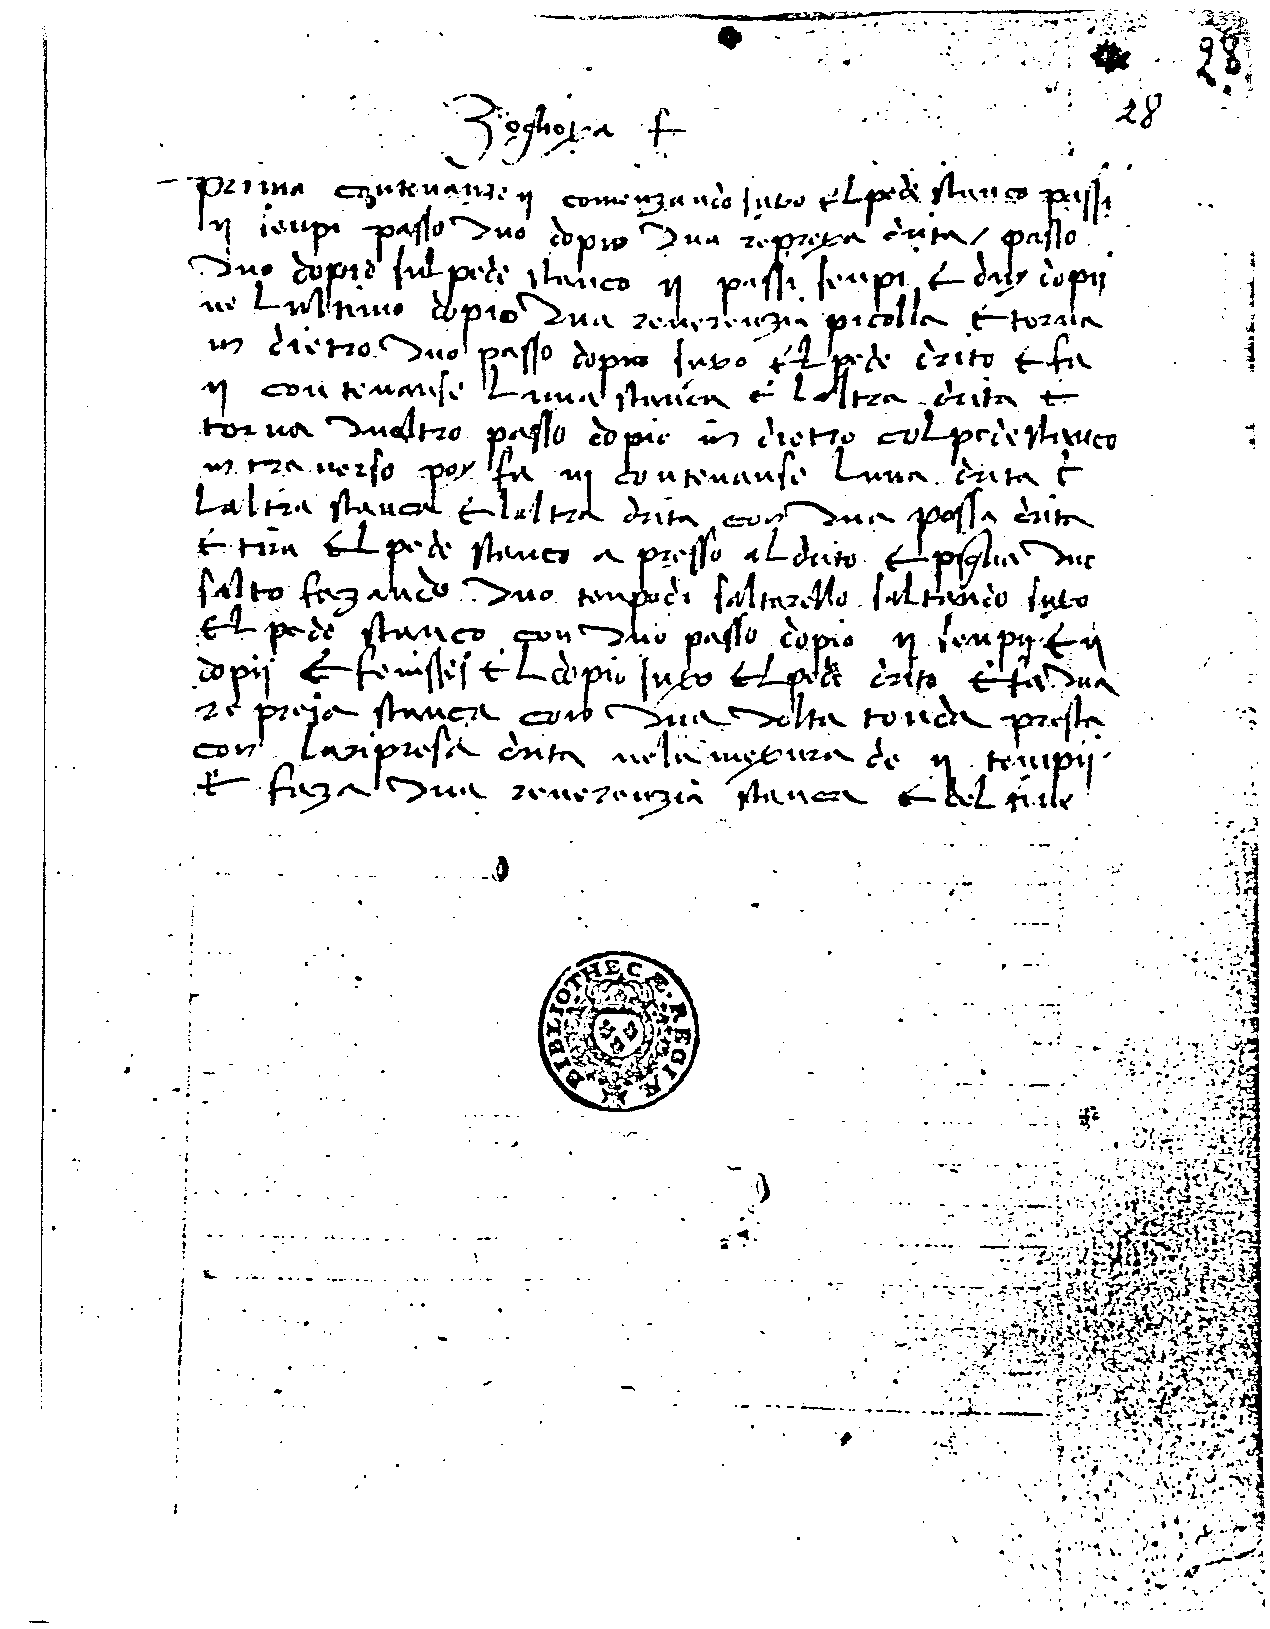 28
28
Zoghoxa f
prima contenanze ij comenzando suxo el pede stanco passi
ij senpi passo duo dopio dua represa drita / passo
duo dopio sul pede stanco ij passi senpi e duy dopii
ne lultimo dopio dua reverenzia picolla e torna
in dietro duo passo dopio suxo el pede drito e fa
ij contenanse luna stanca e laltra drita e
torna dualtro passo dopio in dietro col pede stanco
in traverso poy fa iij contenanse luna drita e
laltra stanca e laltra drita con dua possa drita
e tira el pede stanco a presso al drito e piglia duo
salto fazando duo tenpo di saltarello saltando suxo
el pede stanco con duo passo dopio ij senpij e ij
dopij e fenisses el dopio suxo el pede drito e fa dua
represa stanca con dua volta tonda presta
con la ripresa drita nela mexura de ij tempij
e faza dua reverenzia stanca e del
BIBLIOTHECÆ REGIÆ